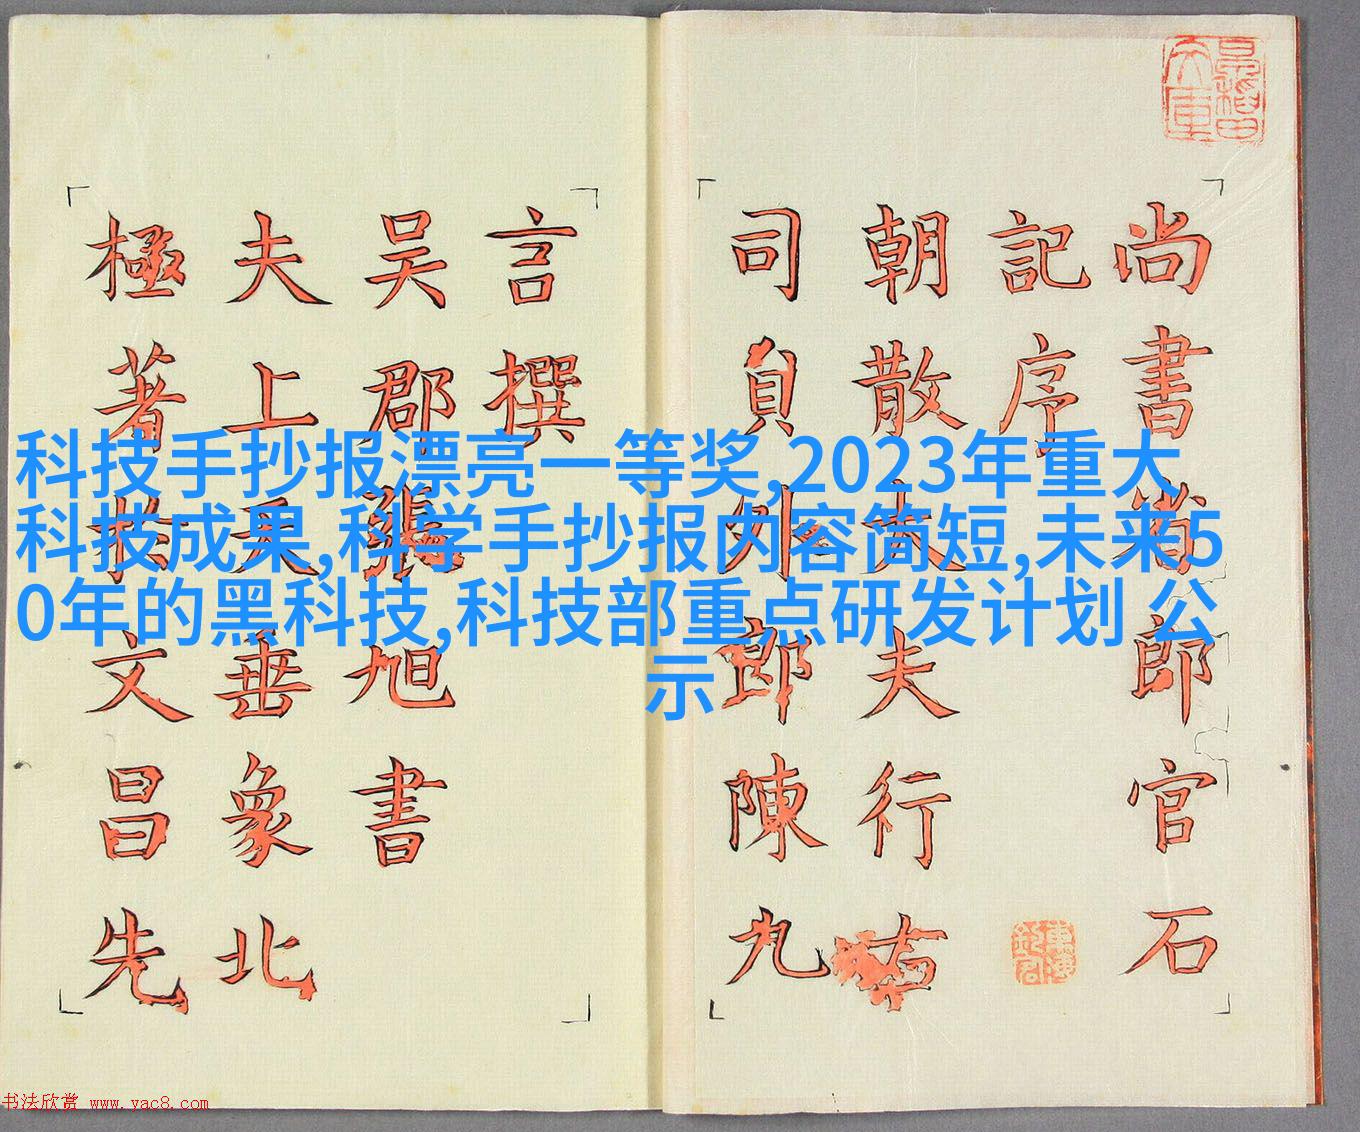 科技手抄报漂亮一等奖,2023年重大
科技成果,科学手抄报内容简短,未来5
0年的黑科技,科技部重点研发计划 公
示
尚書省郎官石
記序
朝散大夫行右
司員外郎陳九
言撰
吴郡張旭書
夫上天垂象北
極著扵文昌先
书法欣赏 www.yac8.com